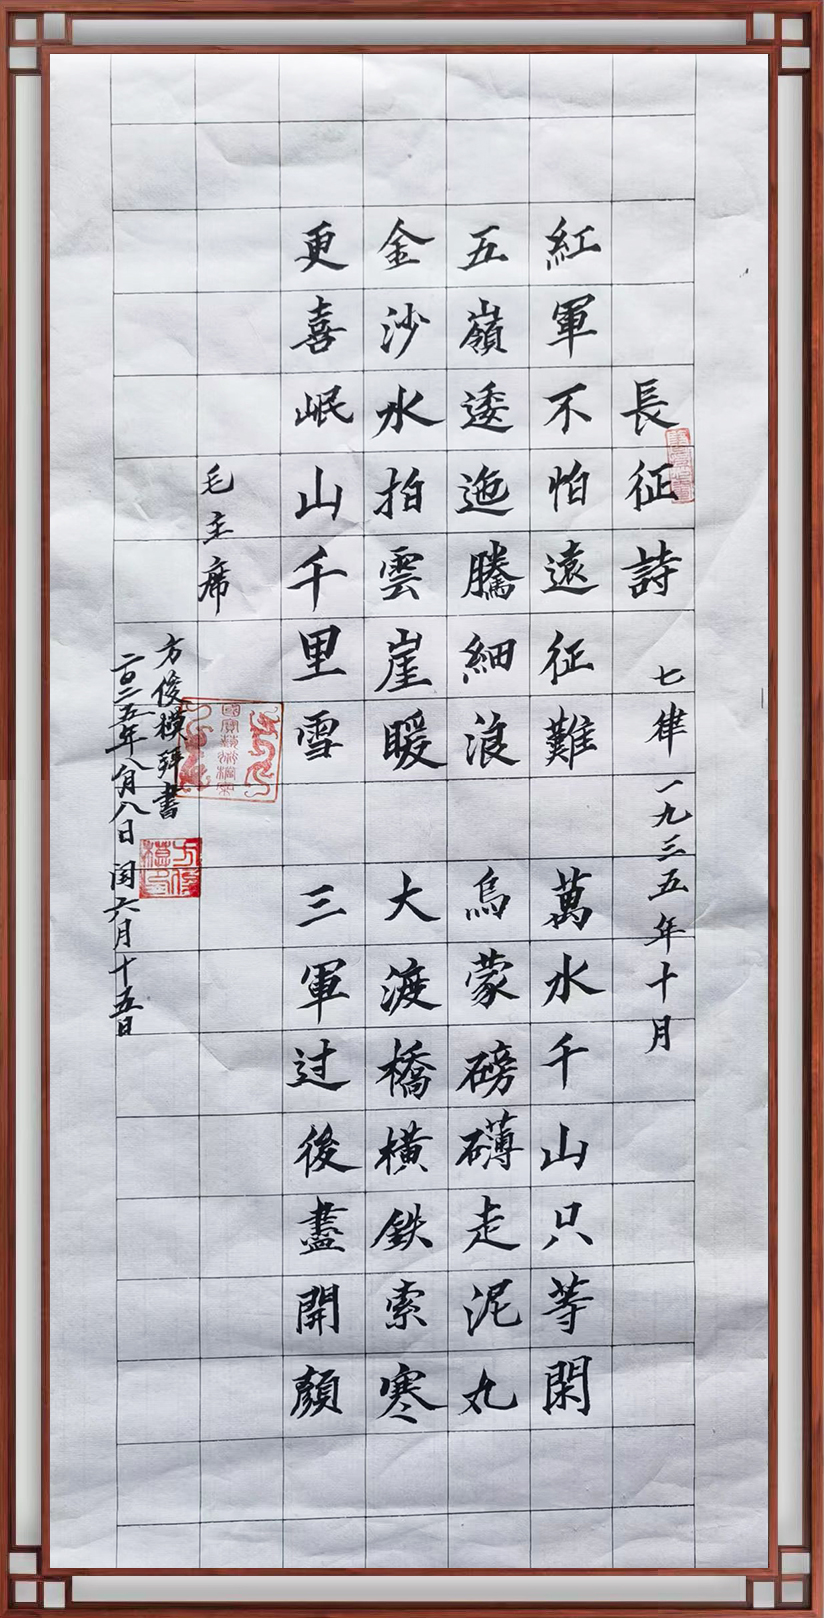 長征詩 七律 一九三五年十月
紅軍不怕遠征難 萬水千山只等閑
五嶺逶迤騰細浪 烏蒙磅礴走泥丸
金沙水拍雲崖暖 大渡橋橫鉄索寒
更喜岷山千里雪 三軍过後盡開顏
毛主席
方俊模拜書
二〇二五年八月八日 闰六月十五日
方俊模印